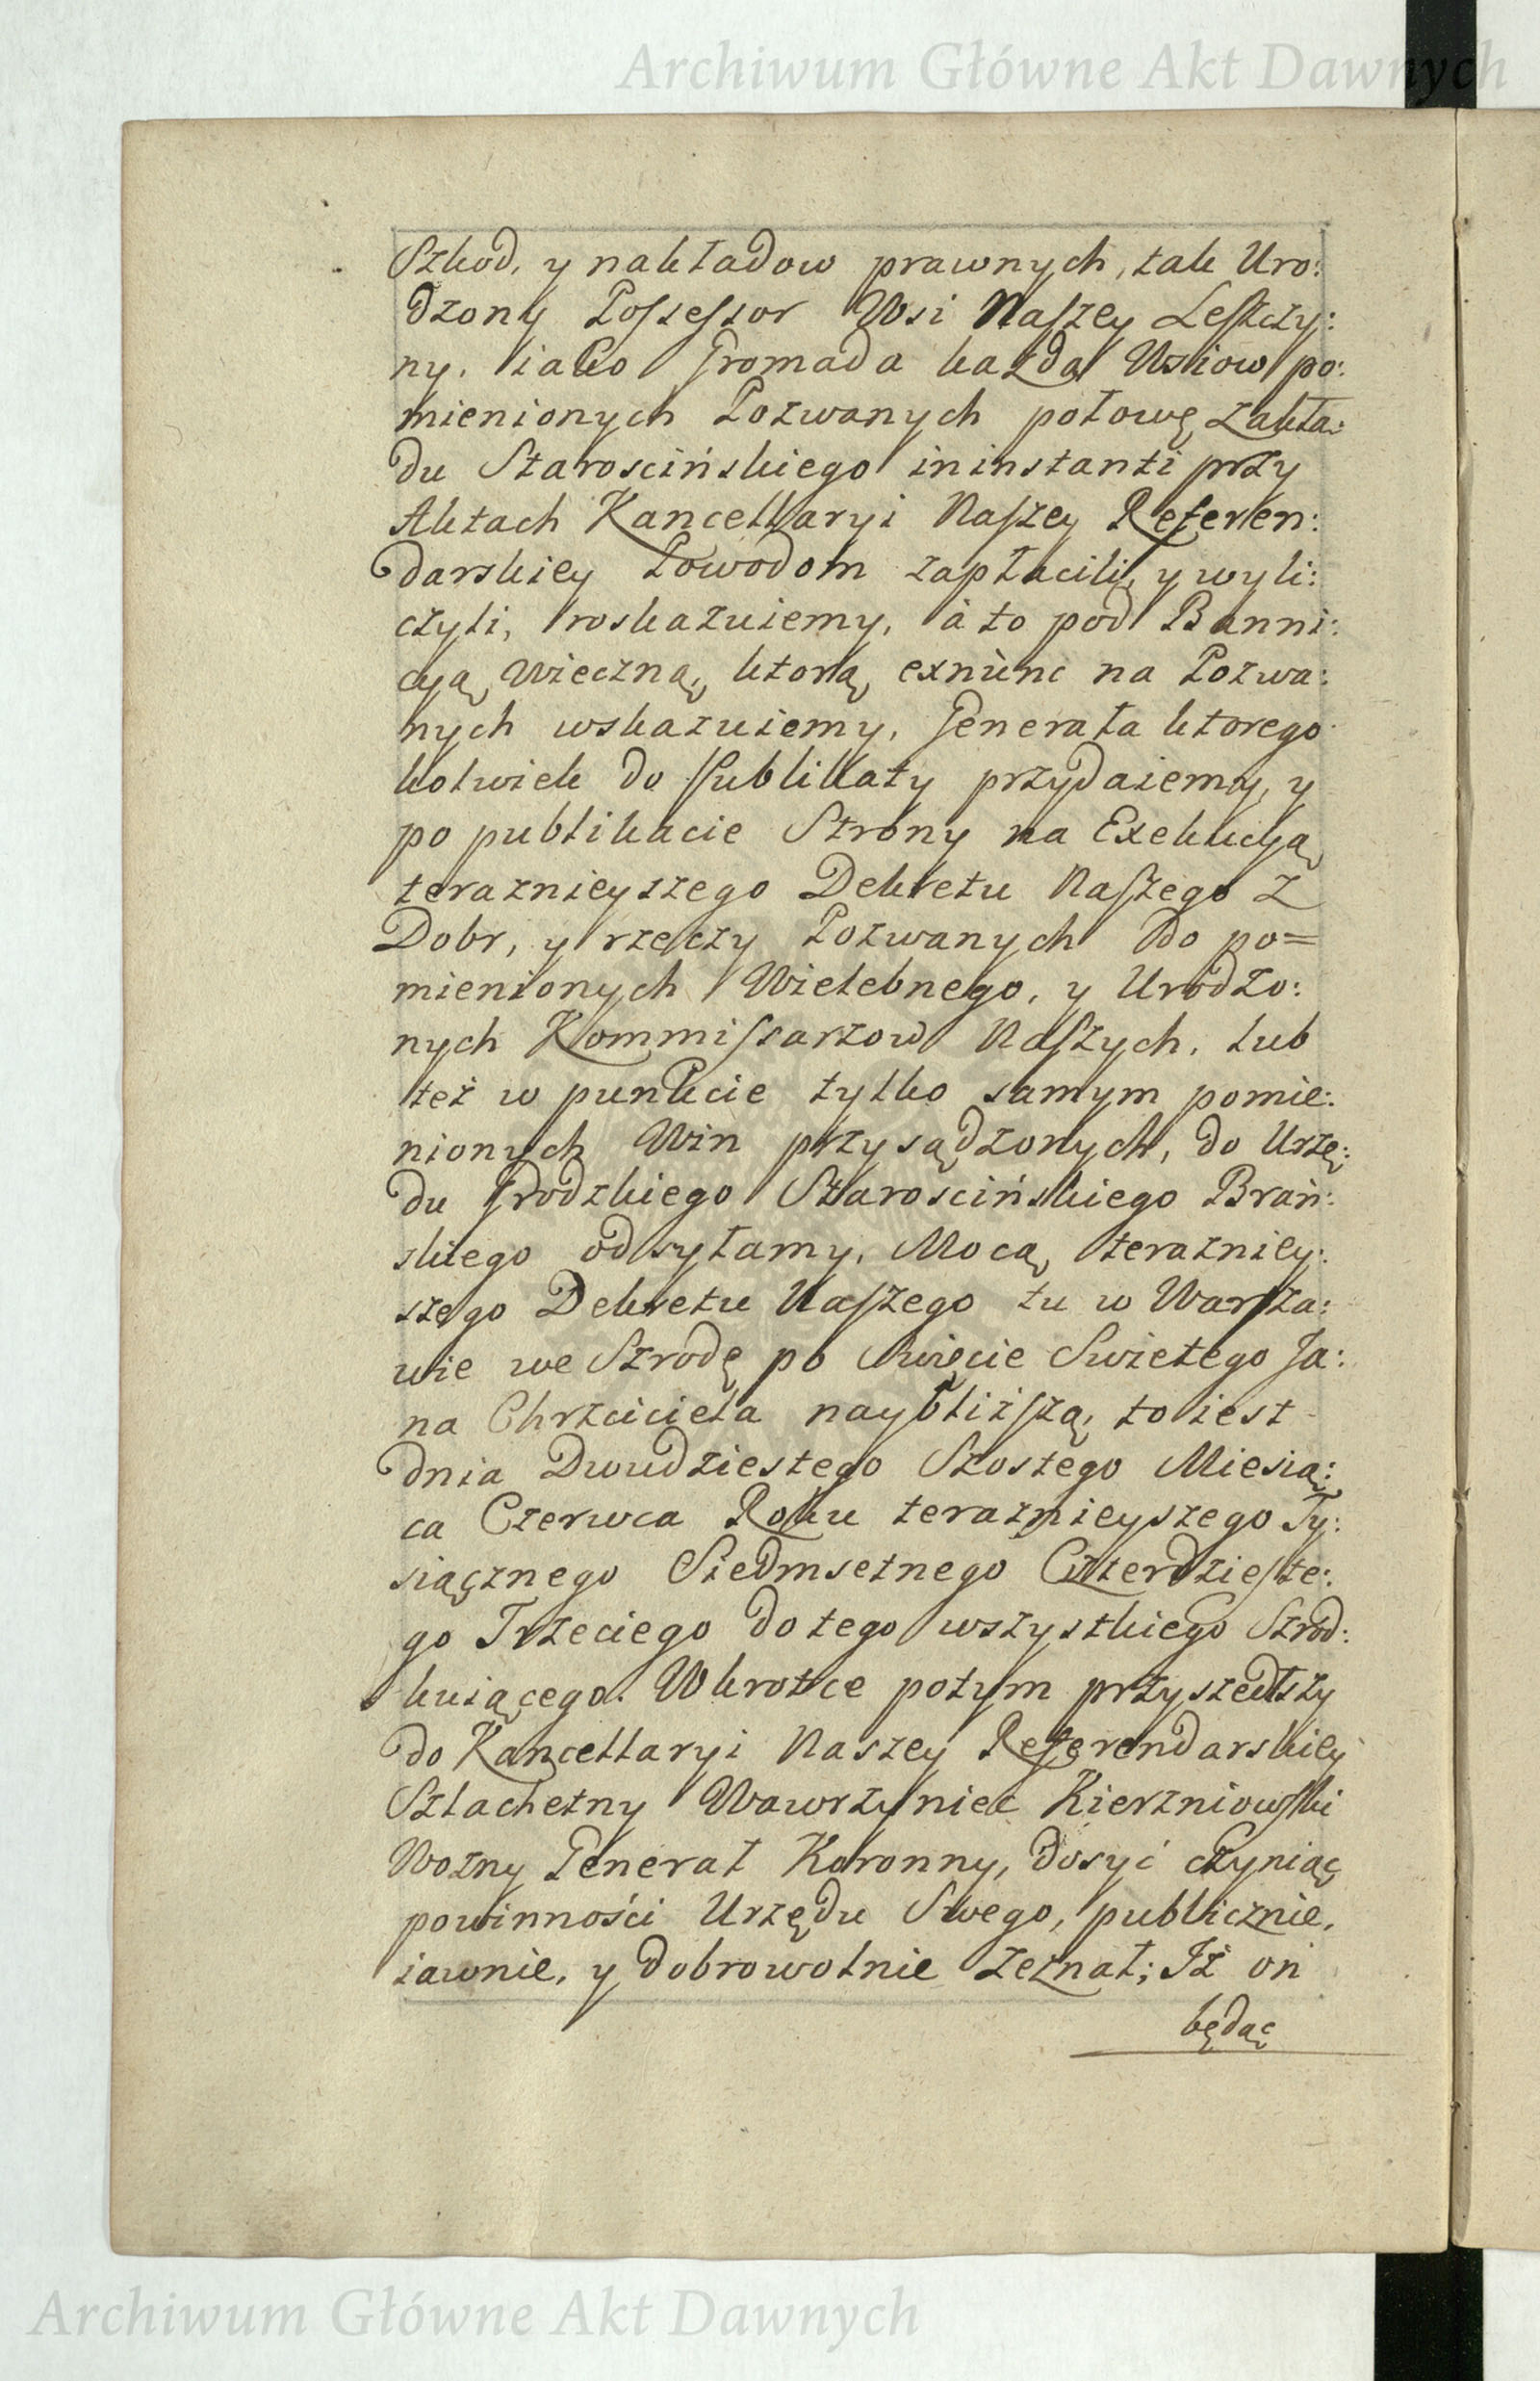 Archiwum Główne Akt Dawnych
Szkod, y nakładow prawnych, tak Uro:
dzony Possessor Wsi Naszey Leszczy:
ny, iako Gromada każda Wsiow po:
mienionych Pozwanych połowę zakła:
du Starościńskiego in instanti przy
Aktach Kancellaryi Naszey Referen:
darskiey Powodom zapłacili, y wyli:
czyli, roskazuiemy, à to pod Banni:
cyą Wieczną, ktorą exnunc na Pozwa:
nych wskazuiemy, Generała ktorego
kolwiek do Publikaty przydaiemy, y
po publikacie Strony na Exekucyą
teraznieyszego Dekretu Naszego z
Dobr, y rzeczy Pozwanych do po=
mienionych Wielebnego, y Urodzo:
nych Kommissarzow Naszych, lub
też w punkcie tylko samym pomie:
nionych Win przysądzonych, do Urzę:
du Grodzkiego Starościńskiego Brań:
skiego odsyłamy, Mocą terazniey:
szego Dekretu Naszego tu w Warsza:
wie we Szrodę po Swięcie Swiętego Ja:
na Chrzciciela naybliższą, to iest
dnia Dwudziestego Szostego Miesią:
ca Czerwca Roku teraznieyszego Ty:
siącznego Siedmsetnego Czterdzieste:
go Trzeciego do tego wszystkiego Szrod:
kuiącego. Wkrotce potym przyszedłszy
do Kancellaryi Naszey Referendarskiey
Szlachetny Wawrzyniec Kierzniowski
Wozny Generał Koronny, dosyć czyniąc
powinności Urzędu Swego, publicznie,
iawnie, y dobrowolnie zeznał; Iż on
będąc
Archiwum Główne Akt Dawnych